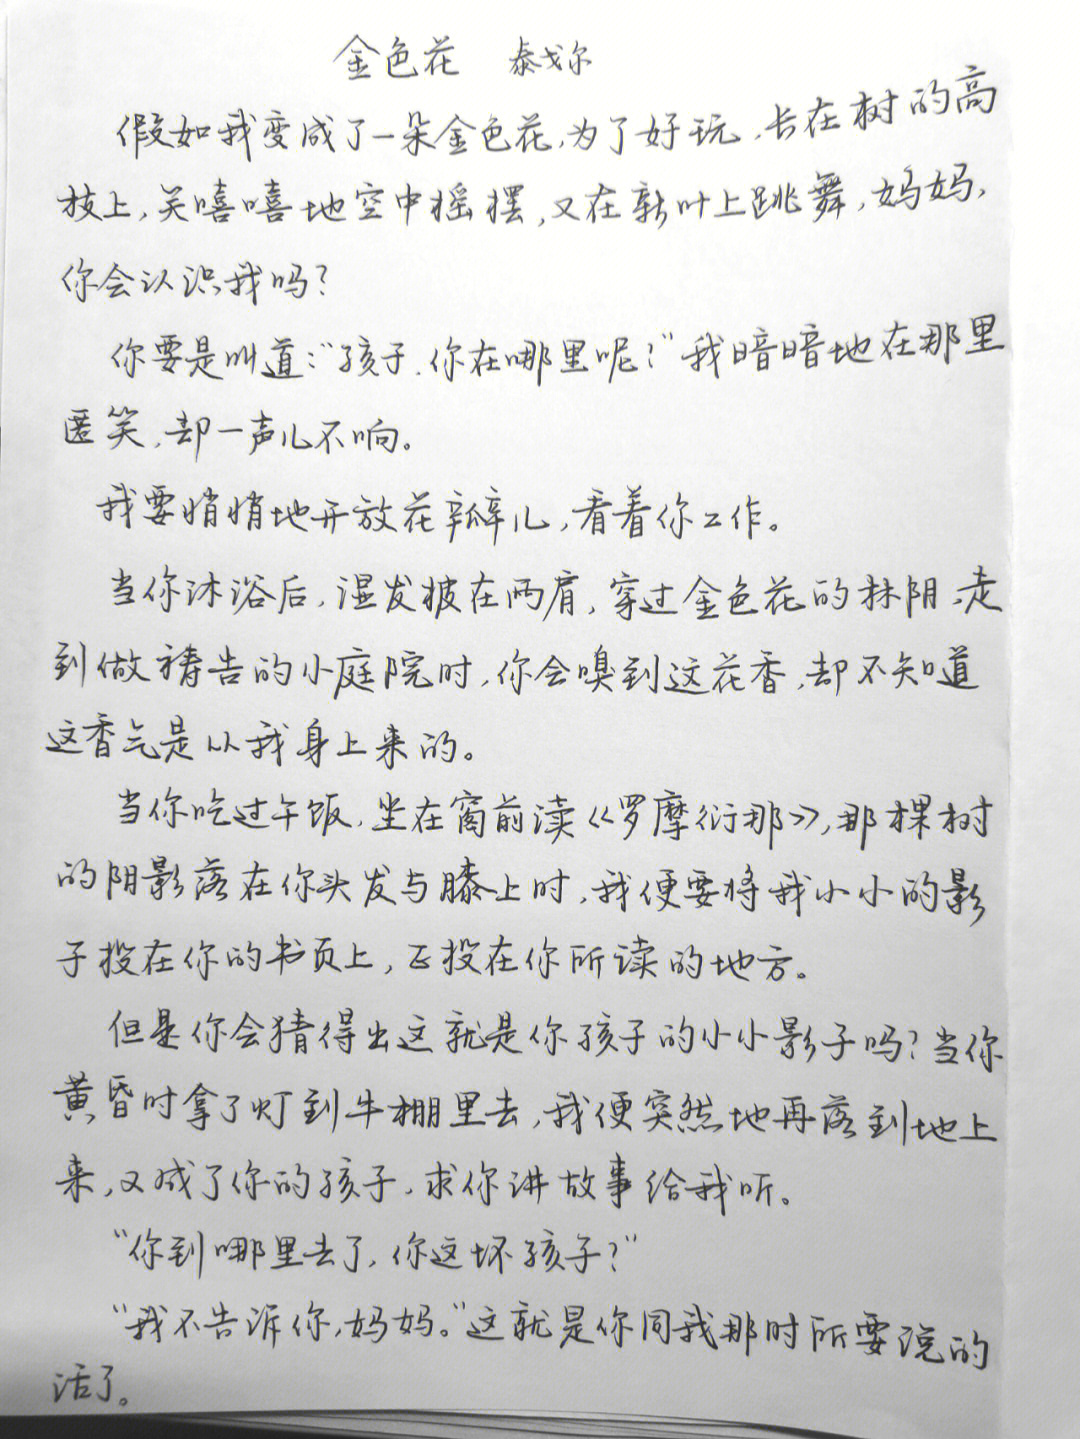 金色花 泰戈尔
假如我变成了一朵金色花,为了好玩,长在树的高
枝上,笑嘻嘻地空中摇摆,又在新叶上跳舞,妈妈,
你会认识我吗?
你要是叫道:“孩子,你在哪里呢?”我暗暗地在那里
匿笑,却一声儿不响。
我要悄悄地开放花瓣儿,看着你工作。
当你沐浴后,湿发披在两肩,穿过金色花的林阴,走
到做祷告的小庭院时,你会嗅到这花香,却不知道
这香气是从我身上来的。
当你吃过午饭,坐在窗前读《罗摩衍那》,那棵树
的阴影落在你头发与膝上时,我便要将我小小的影
子投在你的书页上,正投在你所读的地方。
但是你会猜得出这就是你孩子的小小影子吗?当你
黄昏时拿了灯到牛棚里去,我便突然地再落到地上
来,又成了你的孩子,求你讲故事给我听。
“你到哪里去了,你这坏孩子?”
“我不告诉你,妈妈。”这就是你同我那时所要说的
话了。